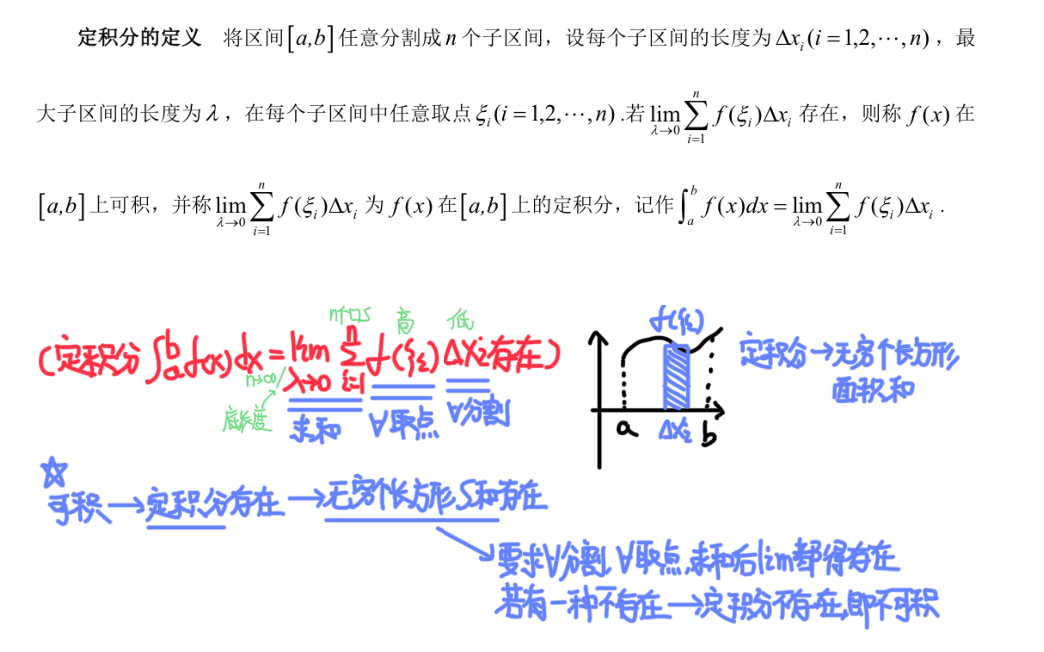 定积分的定义 将区间[a,b]任意分割成n个子区间，设每个子区间的长度为Δxᵢ(i=1,2,⋯,n)，最
大子区间的长度为λ，在每个子区间中任意取点ξᵢ(i=1,2,⋯,n).若lim_{λ→0}∑_{i=1}^{n} f(ξᵢ)Δxᵢ存在，则称f(x)在
[a,b]上可积，并称lim_{λ→0}∑_{i=1}^{n} f(ξᵢ)Δxᵢ为f(x)在[a,b]上的定积分，记作∫_{a}^{b} f(x)dx=lim_{λ→0}∑_{i=1}^{n} f(ξᵢ)Δxᵢ.
n个口S 高 低
(定积分∫_{a}^{b} f(x)dx=lim_{λ→0}∑_{i=1}^{n} f(ξᵢ)Δxᵢ存在)
n→∞/
底长度
求和 ∀取点 ∀分割
f(ξᵢ)
a Δxᵢ b
定积分→无穷个长方形
面积和
可积→定积分存在→无穷个长方形S和存在
要求∀分割,∀取点,求和后lim都得存在
若有一种不存在→定积分不存在,即不可积